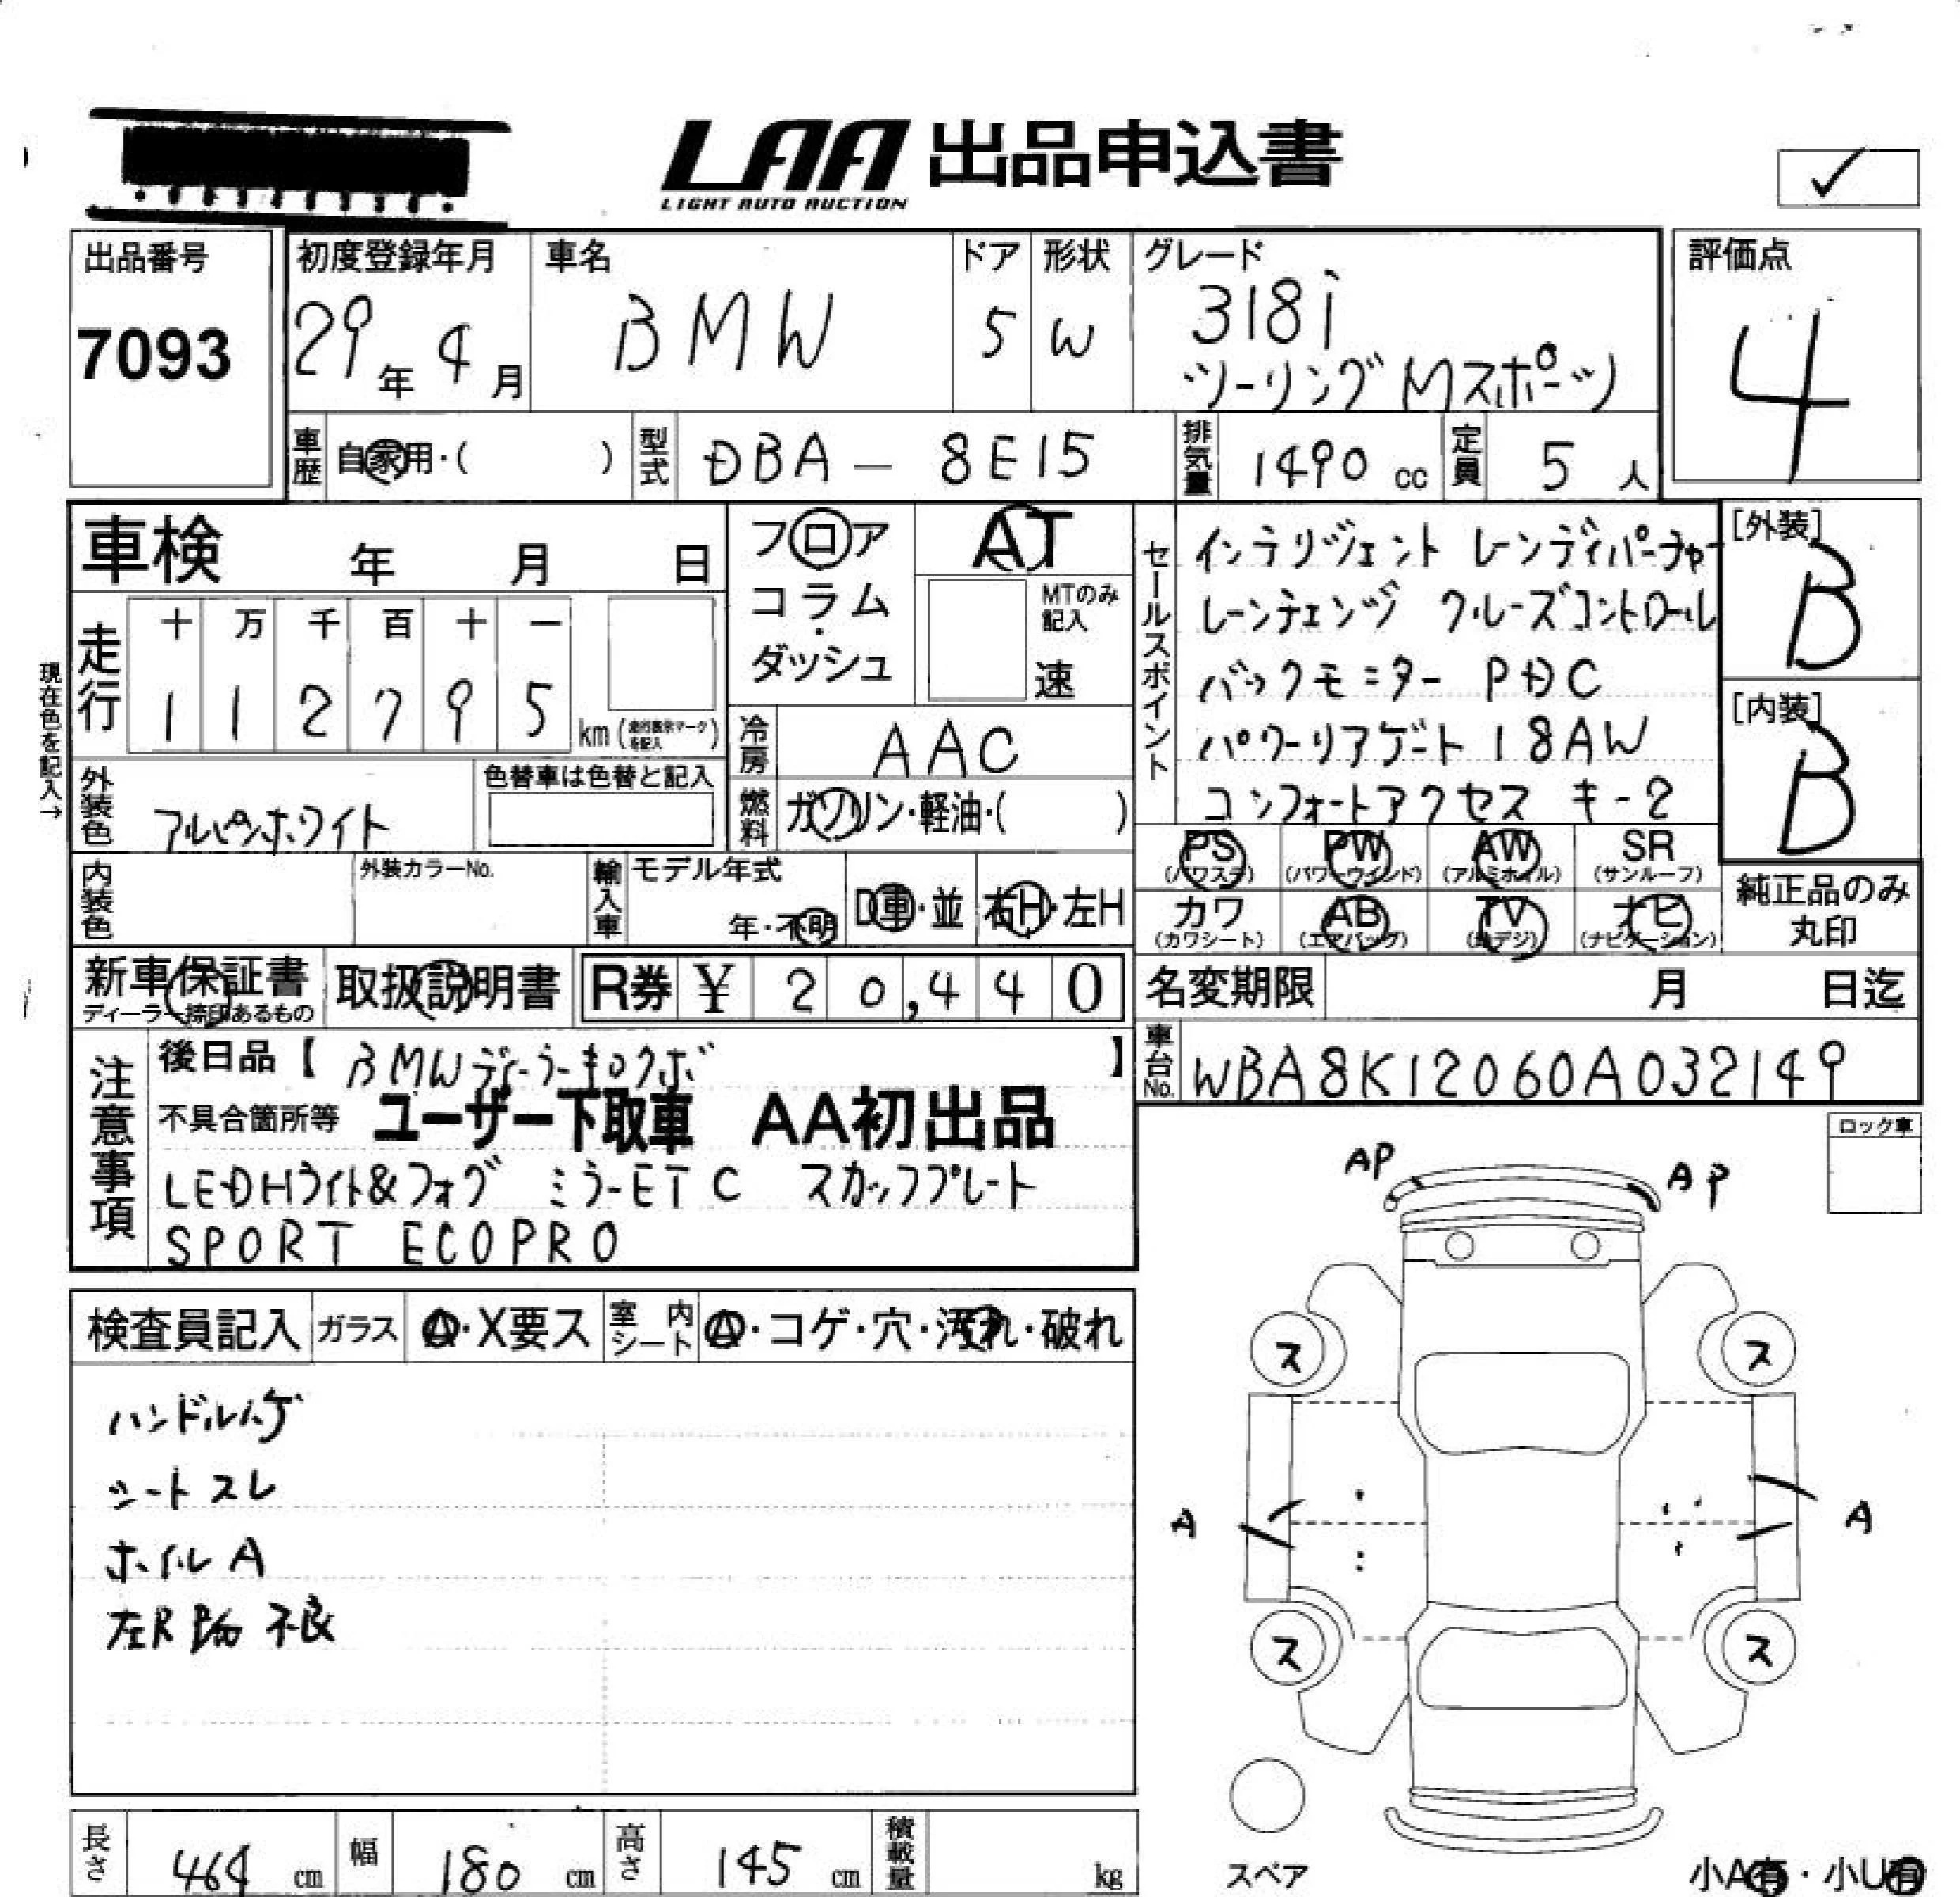 LAA 出品申込書
LIGHT AUTO AUCTION
✓
出品番号
7093
初度登録年月
29年 4月
車名
BMW
ドア
5
形状
W
グレード
318i
ツーリング Mスポーツ
評価点
4
車歴 自家用・( )
型式 DBA － 8E15
排気量 1490 cc
定員 5 人
車検 年 月 日
フロア
コラム・
ダッシュ
AT
MTのみ記入
速
セールスポイント
インテリジェント レーンディパーチャー
レーンチェンジ クルーズコントロール
バックモニター PDC
パワーリアゲート 18AW
コンフォートアクセス キー2
[外装]
B
[内装]
B
現在色を記入→
走行
十 万 千 百 十 一
1 1 2 7 9 5
km (走行表示マークを記入)
冷房 AAC
外装色 アルピンホワイト
色替車は色替と記入
燃料 ガソリン・軽油・( )
PS (パワステ) PW (パワーウインド) AW (アルミホイル) SR (サンルーフ)
カワ (カワシート) AB (エアバッグ) TV (地デジ) ナビ (ナビゲーション)
純正品のみ
丸印
内装色
外装カラーNo.
輸入車
モデル年式
年・不明
D車・並
右H・左H
新車保証書
ディーラー捺印あるもの
取扱説明書
R券 ¥ 20,440
名変期限 月 日迄
車台No. WBA8K12060A032149
注意事項
後日品【 BMWディーラーキロクボ 】
不具合箇所等 ユーザー下取車 AA初出品
LEDHライト&フォグ ミラーETC スカッフプレート
SPORT ECOPRO
ロック車
AP AP
検査員記入 ガラス A・X要ス 室内シート A・コゲ・穴・汚れ・破れ
ハンドルハゲ
シートスレ
ホイルA
左R 不良
ス ス
A A
ス ス
スペア
小A有・小U有
長さ 464 cm
幅 180 cm
高さ 145 cm
積載量 kg